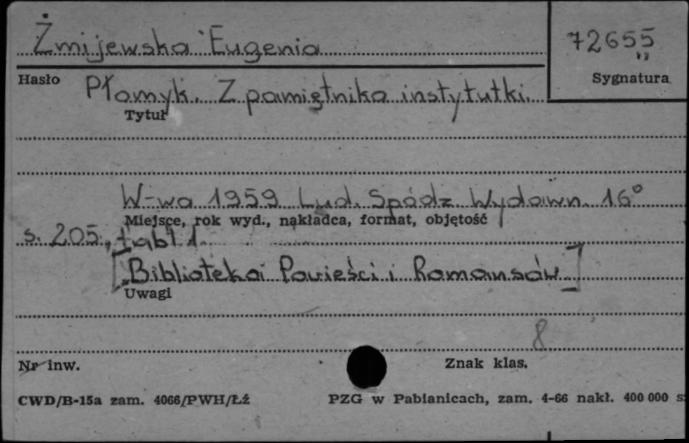 Żmijewska Eugenia
72655
Hasło
Sygnatura
Płomyk. Z pamiętnika instytutki.
Tytuł
W-wa 1959 Lud. Spółdz. Wydawn. 16°
Miejsce, rok wyd., nakładca, format, objętość
s. 205, tabl. 1.
[Biblioteka Powieści i Romansów]
Uwagi
8
Nr inw.
Znak klas.
CWD/B-15a zam. 4066/PWH/Łź
PZG w Pabianicach, zam. 4-66 nakł. 400 000 s